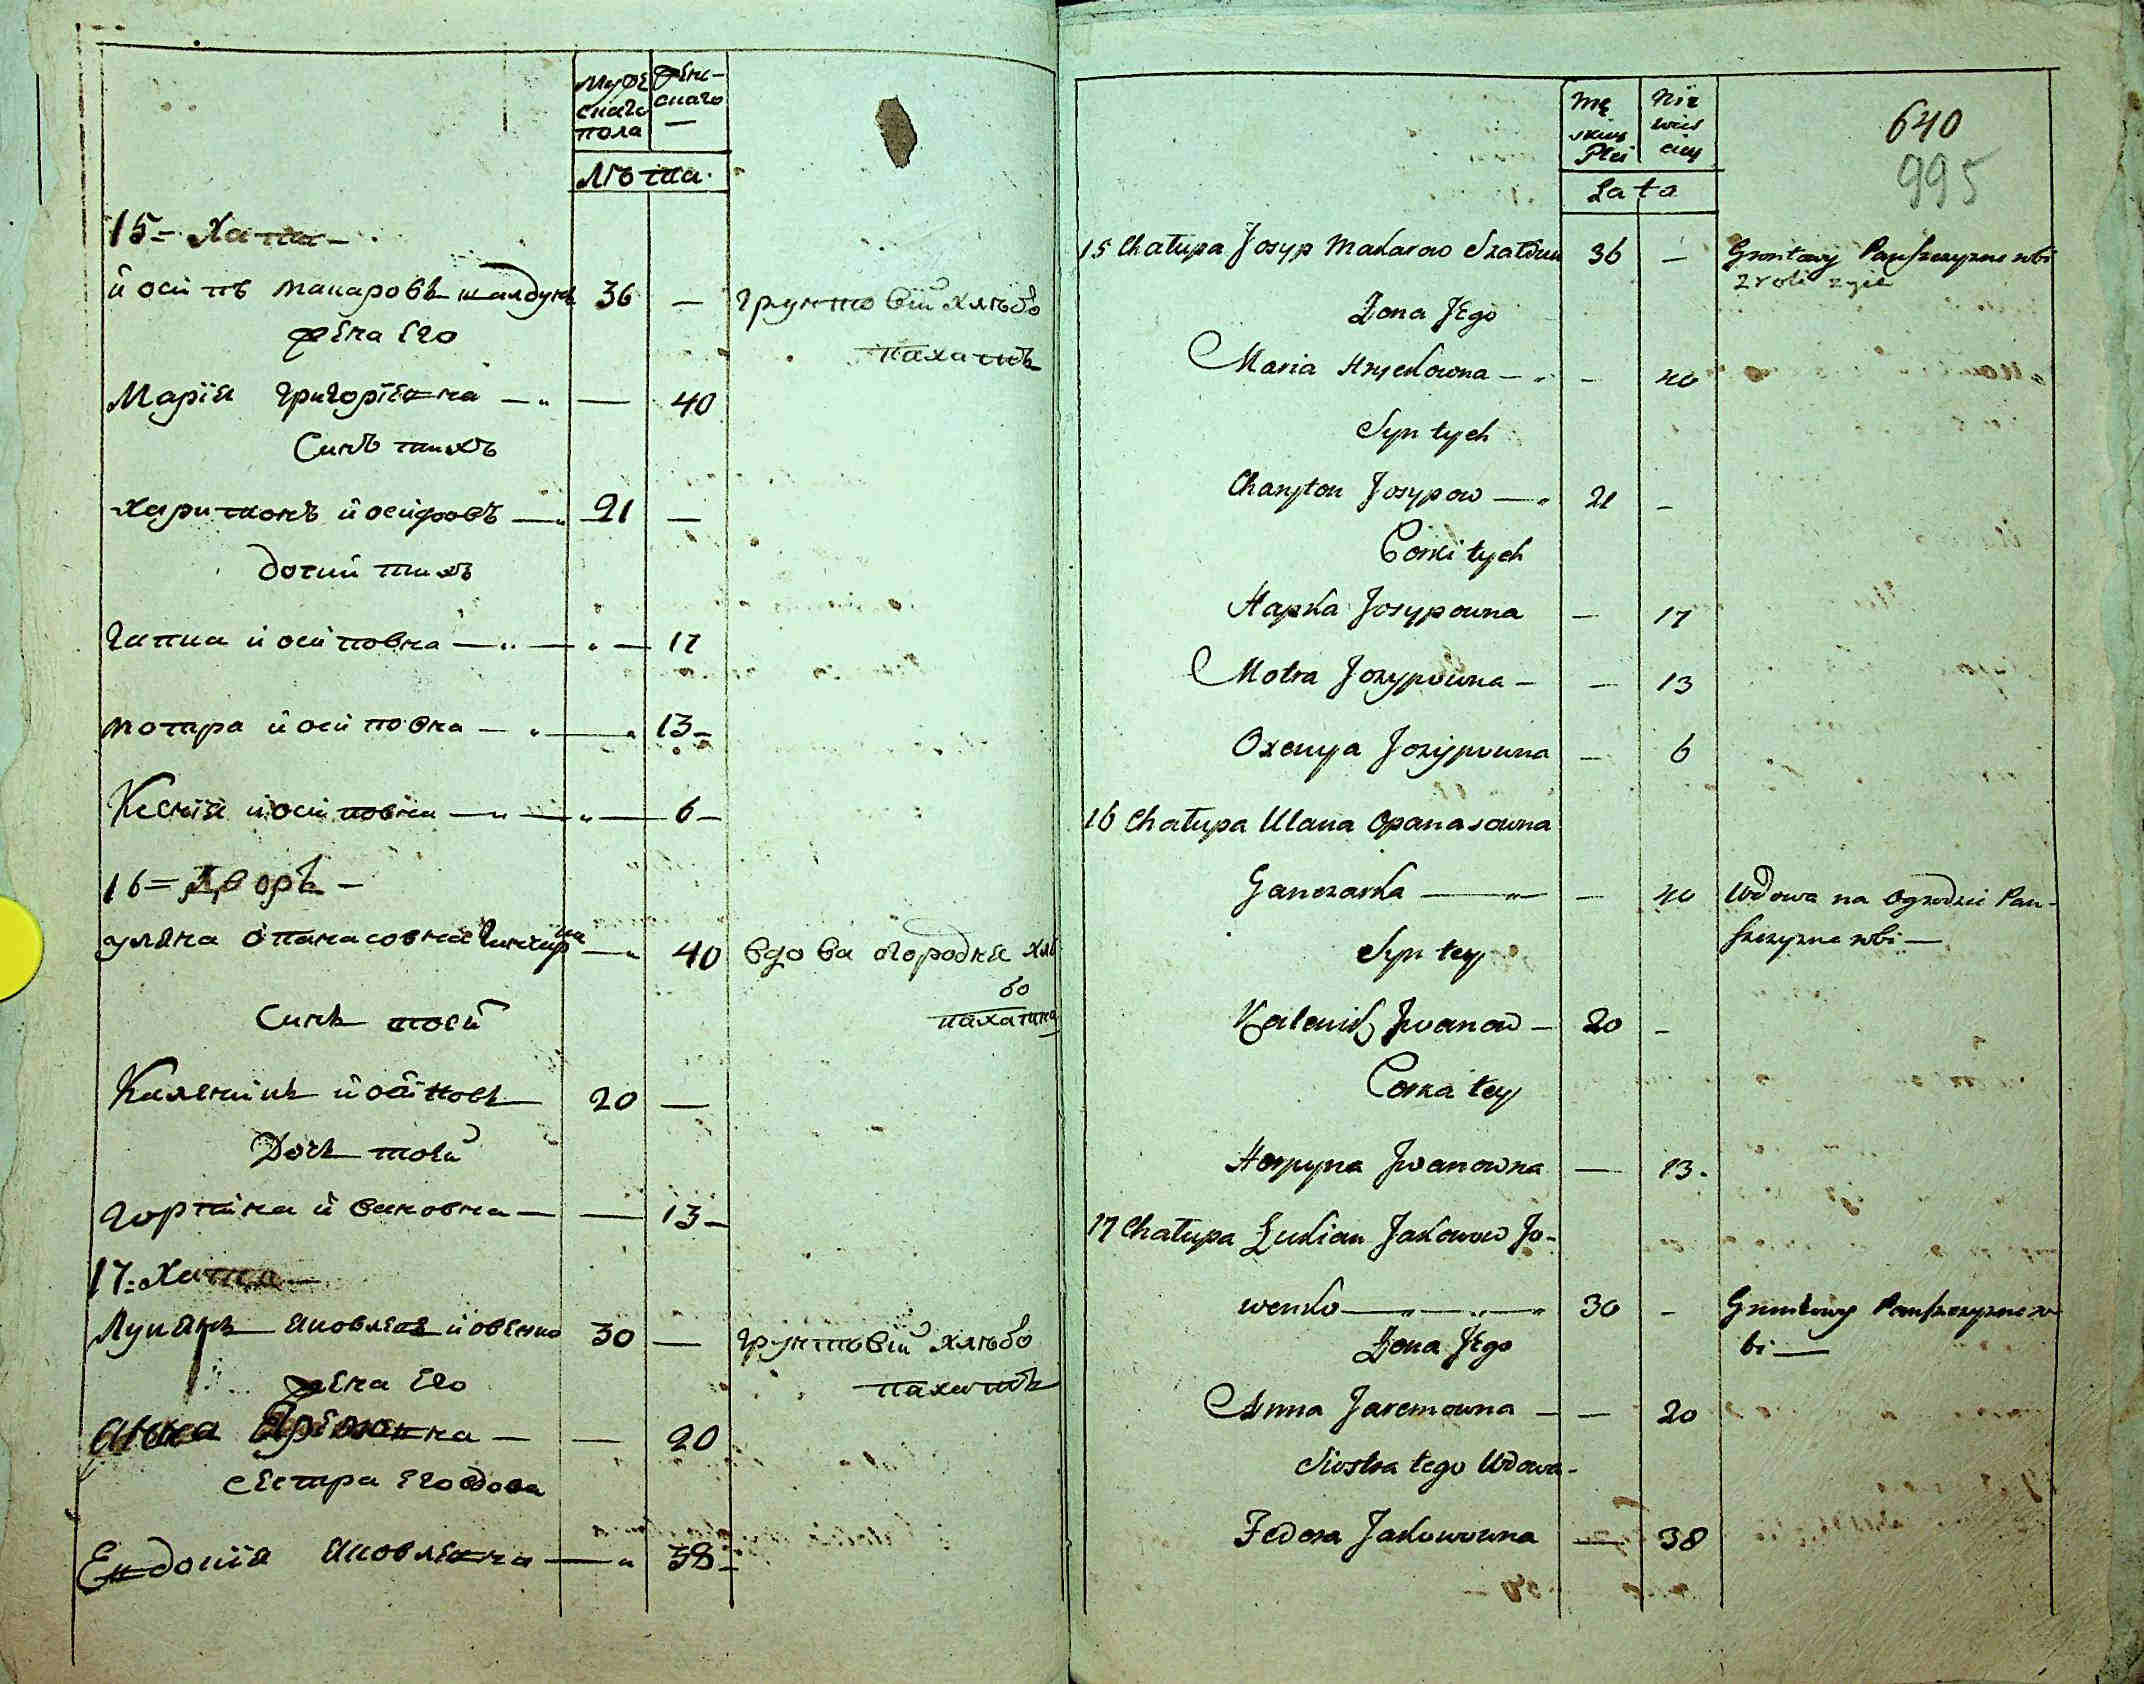 Муже
скаго
пола
Женс-
скаго
—
Лѣта.
15 = Хата —
Йосипъ Макаровъ Шалдунъ 36 — грунтовій хлѣбо
жена его
пахатнъ
Марія Григоріевна — „ — 40
Синъ тихъ
Харитонъ Йосифовъ — „ 21 —
дочки тихъ
Гапка Йосиповна — „ — „ — 17
Мотира Йосиповна — „ — „ 13 —
Ксенія Йосиповна — „ — „ — 6 —
16 = Дворъ —
Уляна Опанасовна — „ 40 вдова огородняя хлѣ
бо
пахатна
Синъ тоей
Каленикъ 20 —
Дочъ тоей
Горпина Йвановна — — 13 —
17 = Хата —
Лукянъ Яковлевъ Йовенко 30 — грунтовій хлѣбо
жена его
пахатнъ
Анна — — 20
сестра его вдова
Евдокия Яковлевна — „ 38 —
Mę
skiey
Płci
Nie
wies
ciey
640
995
Lata
15 Chałupa Josyp Makarow Szałdun 36 — Gruntowy Panszczyzne robi
z roli zyie
Żona Jego
Maria Hryckowna — „ — 40
Syn tych
Charyton Josypow — „ 21 —
Corki tych
Hapka Josypowna — 17
Motra Jozypowna — — 13
Oxenya Jozypowna — 6
16 Chałupa Ulana Opanasowna
Ganczarka — „ — 40 Wdowa na Ogrodzie Pan-
szczyzne robi —
Syn tey
Kalenik Jwanow — 20 —
Corka tey
Horpyna Jwanowna — 13.
17 Chałupa Łukian Jakowow Jo-
wenko — „ — „ — „ 30 — Gruntowy Panszczyzne ro-
bi —
Żona Jego
Anna Jaremowna — — 20
Siostra tego Wdowa —
Fedora Jakowowna — 38